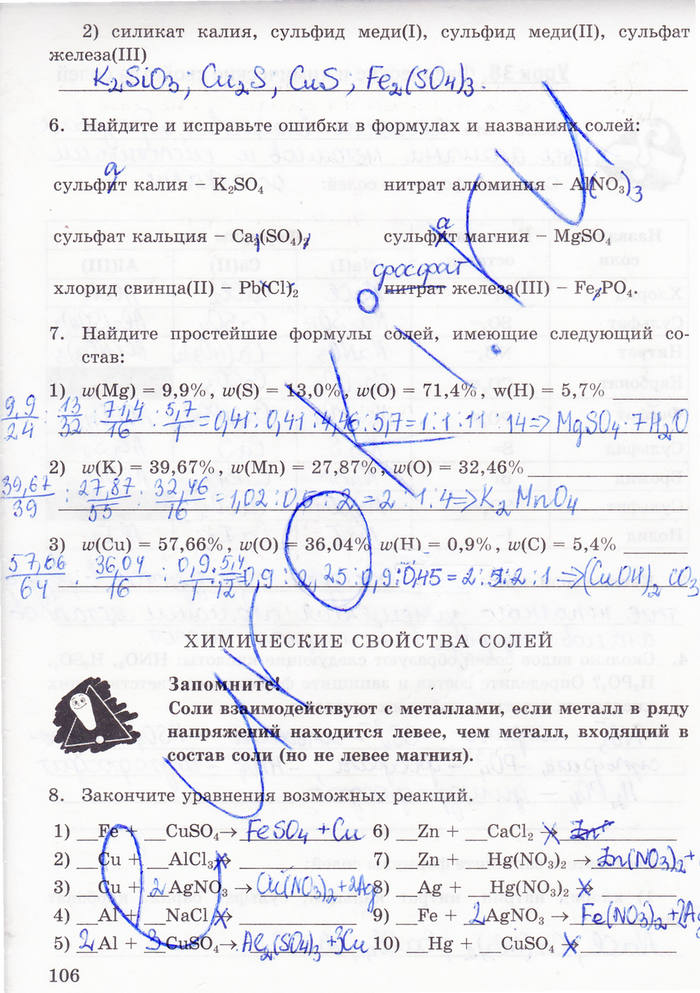 2) силикат калия, сульфид меди(I), сульфид меди(II), сульфат
железа(III)
K2SiO3, Cu2S, CuS, Fe2(SO4)3.
6. Найдите и исправьте ошибки в формулах и названиях солей:
а
сульфит калия – K₂SO₄ нитрат алюминия – Al(NO₃)3
сульфат кальция – Ca₂(SO₄)₂ а сульфит магния – MgSO₄
фосфат
хлорид свинца(II) – Pb(Cl)₂ нитрат железа(III) – Fe₃PO₄.
7. Найдите простейшие формулы солей, имеющие следующий со-
став:
1) w(Mg) = 9,9%, w(S) = 13,0%, w(O) = 71,4%, w(H) = 5,7%
9,9/24 : 13/32 : 71,4/16 : 5,7/1 = 0,41 : 0,41 : 4,46 : 5,7 = 1 : 1 : 11 : 14 => MgSO4 · 7H2O
2) w(K) = 39,67%, w(Mn) = 27,87%, w(O) = 32,46%
39,67/39 : 27,87/55 : 32,46/16 = 1,02 : 0,5 : 2 = 2 : 1 : 4 => K2MnO4
3) w(Cu) = 57,66%, w(O) = 36,04% w(H) = 0,9%, w(C) = 5,4%
57,66/64 : 36,04/16 : 0,9/1 : 5,4/12 = 0,9 : 2,25 : 0,9 : 0,45 = 2 : 5 : 2 : 1 => (CuOH)2CO3
ХИМИЧЕСКИЕ СВОЙСТВА СОЛЕЙ
Запомните!
Соли взаимодействуют с металлами, если металл в ряду
напряжений находится левее, чем металл, входящий в
состав соли (но не левее магния).
8. Закончите уравнения возможных реакций.
1) Fe + CuSO₄ → FeSO4 + Cu 6) Zn + CaCl₂ →
2) Cu + AlCl₃ → 7) Zn + Hg(NO₃)₂ → Zn(NO3)2 +
3) Cu + 2 AgNO₃ → Cu(NO3)2 + 2Ag 8) Ag + Hg(NO₃)₂ →
4) Al + NaCl → 9) Fe + 2 AgNO₃ → Fe(NO3)2 + 2Ag
5) 2 Al + 3 CuSO₄ → Al2(SO4)3 + 3Cu 10) Hg + CuSO₄ →
106